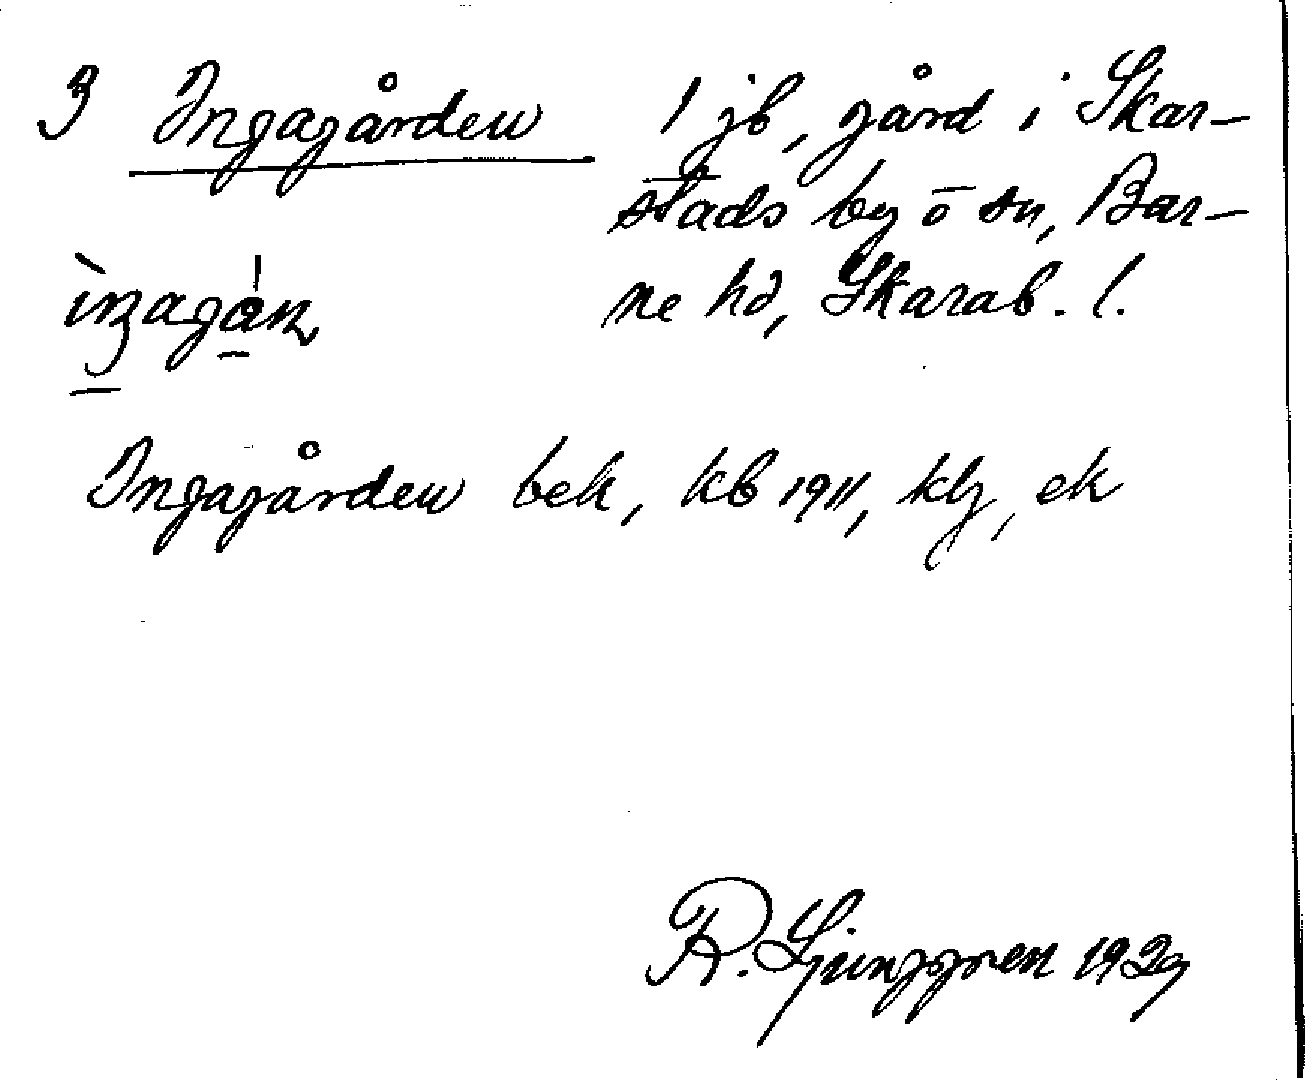 3 Ingagården 1 jb, gård i Skar-
stads by o sn, Bar-
ne hd, Skarab. l.
Ingagården bek, kb 1911, klj, ek
R. Ljunggren 1929